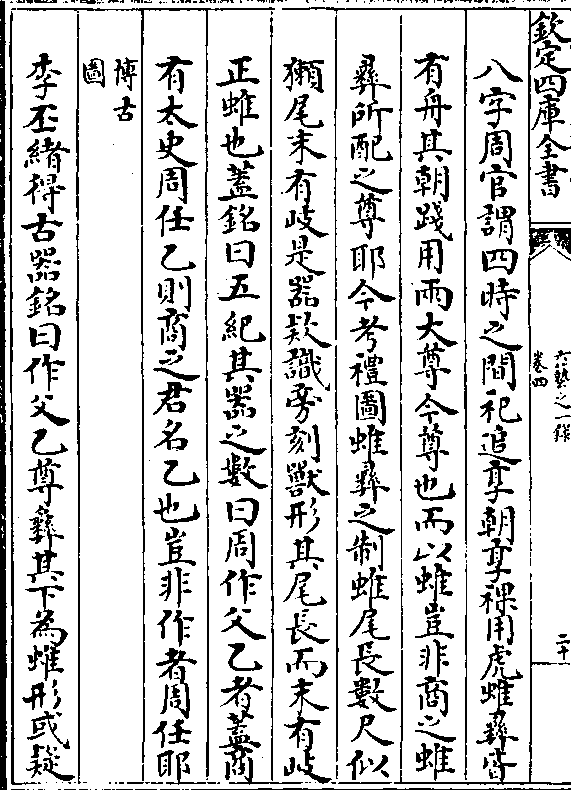 欽定四庫全書
六藝之一錄
卷四
二十
八字周官謂四時之間祀追享朝享祼用虎蜼彞皆
有舟其朝踐用兩大尊今尊也而以蜼豈非商之蜼
彞所配之尊耶今考禮圖蜼彞之制蜼尾長數尺似
獺尾末有岐是器欵識旁刻獸形其尾長而末有岐
正蜼也蓋銘曰五紀其器之數曰周作父乙者蓋商
有太史周任乙則商之君名乙也豈非作者周任耶
博古
圖
李丕緒得古器銘曰作父乙尊彞其下為蜼形或疑